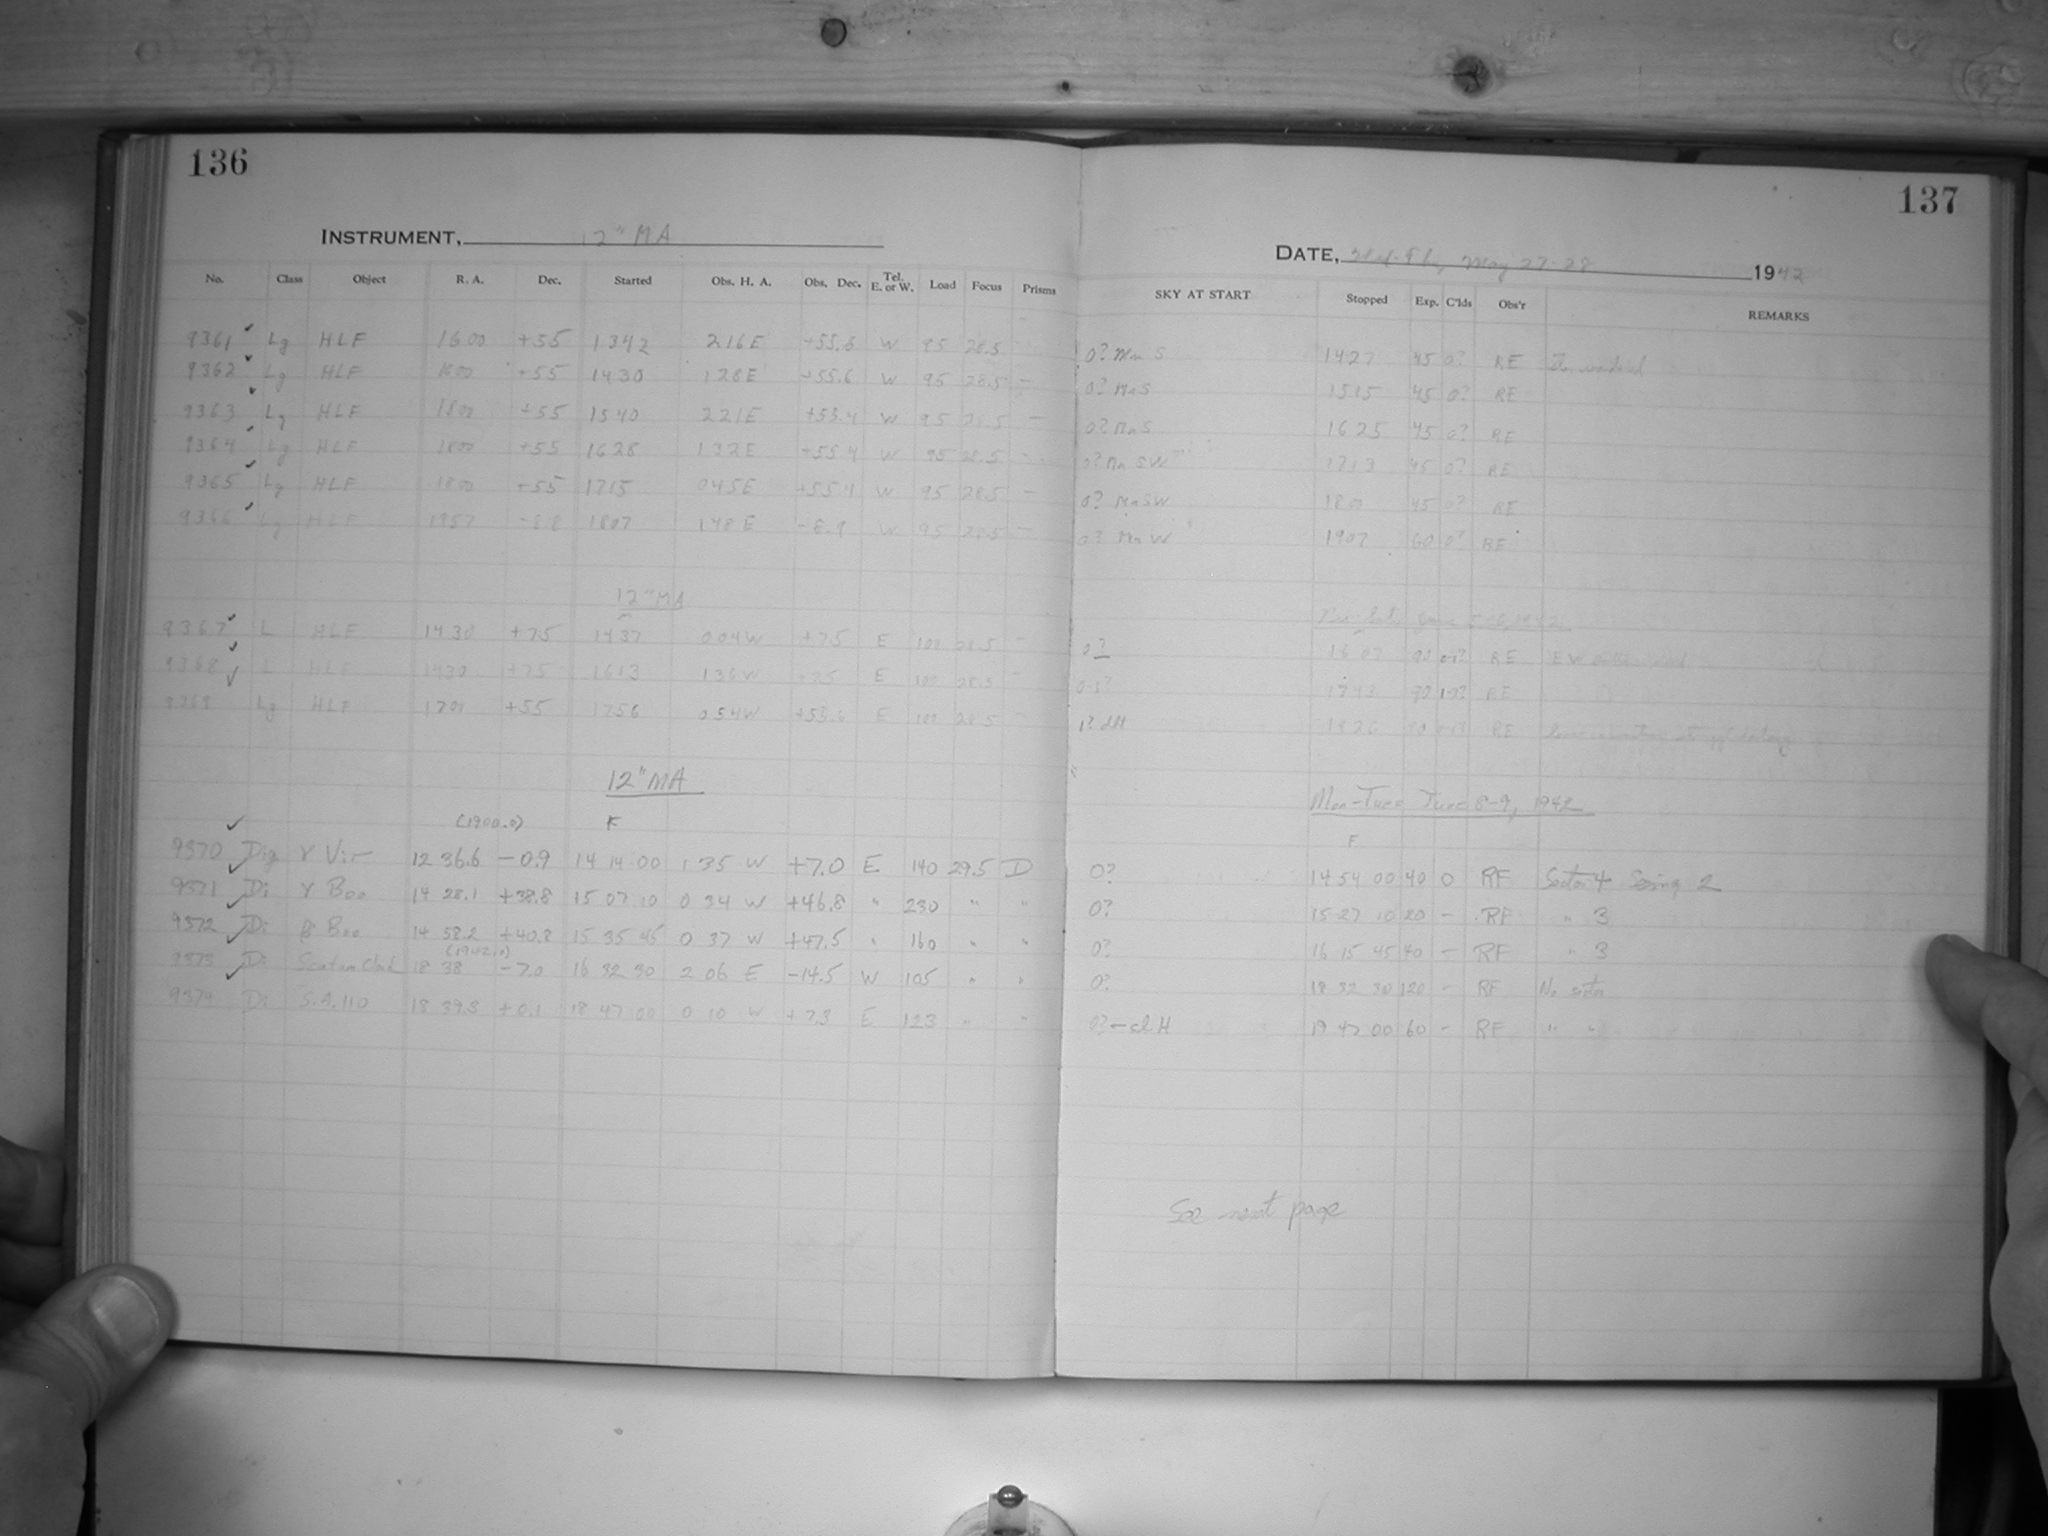 136
137
INSTRUMENT, 12" MA
DATE, May 27-28 1942
No. Class Object R. A. Dec. Started Obs. H. A. Obs. Dec. Tel. E. or W. Load Focus Prisms SKY AT START Stopped Exp. C'lds Obs'r REMARKS
9361 Lg HLF 1600 +55 1342 216E +55.6 W 95 28.5 0? Mn S 1427 45 0? RE
9362 Lg HLF 1600 +55 1430 128E +55.6 W 95 28.5 - 0? Mn S 1515 45 0? RE
9363 Lg HLF 1800 +55 1540 221E +55.4 W 95 28.5 - 0? Mn S 1625 45 0? RE
9364 Lg HLF 1800 +55 1628 132E +55.4 W 95 28.5 - 0? Mn SW 1713 45 0? RE
9365 Lg HLF 1800 +55 1715 045E +55.4 W 95 28.5 - 0? Mn SW 1800 45 0? RE
9366 Lg HLF 1957 1807 148E W 95 28.5 - 0? Mn W 1907 60 0? RE
12" MA
9367 L HLF 1430 +75 1437 004W +75 E 100 28.5 - 0? 1607 90 RE
9368 L HLF 1430 +75 1613 136W +75 E 100 28.5 - 1743 90 RE
9369 Lg HLF 1701 +55 1756 054W +55.6 E 100 28.5 - 1? clH 1826 RE
12" MA Mon-Tues June 8-9, 1942
(1900.0) F F
9370 Dig γ Vir 12 36.6 -0.9 14 14 00 1 35 W +7.0 E 140 29.5 D 0? 14 54 00 40 0 RF Sector 4 Seeing 2
9371 Di γ Boo 14 28.1 +38.8 15 07 10 0 34 W +46.8 " 230 " " 0? 15 27 10 20 - RF " 3
9372 Di β Boo 14 58.2 +40.8 15 35 45 0 37 W +47.5 " 160 " " 0? 16 15 45 40 - RF " 3
(1942.0)
9373 Di Scutum Cloud 18 38 -7.0 16 32 30 2 06 E -14.5 W 105 " " 0? 18 32 30 120 - RF No sector
9374 Di S.A. 110 18 39.3 +0.1 18 47 00 0 10 W +7.3 E 123 " " 0? - cl H 19 47 00 60 - RF " "
See next page